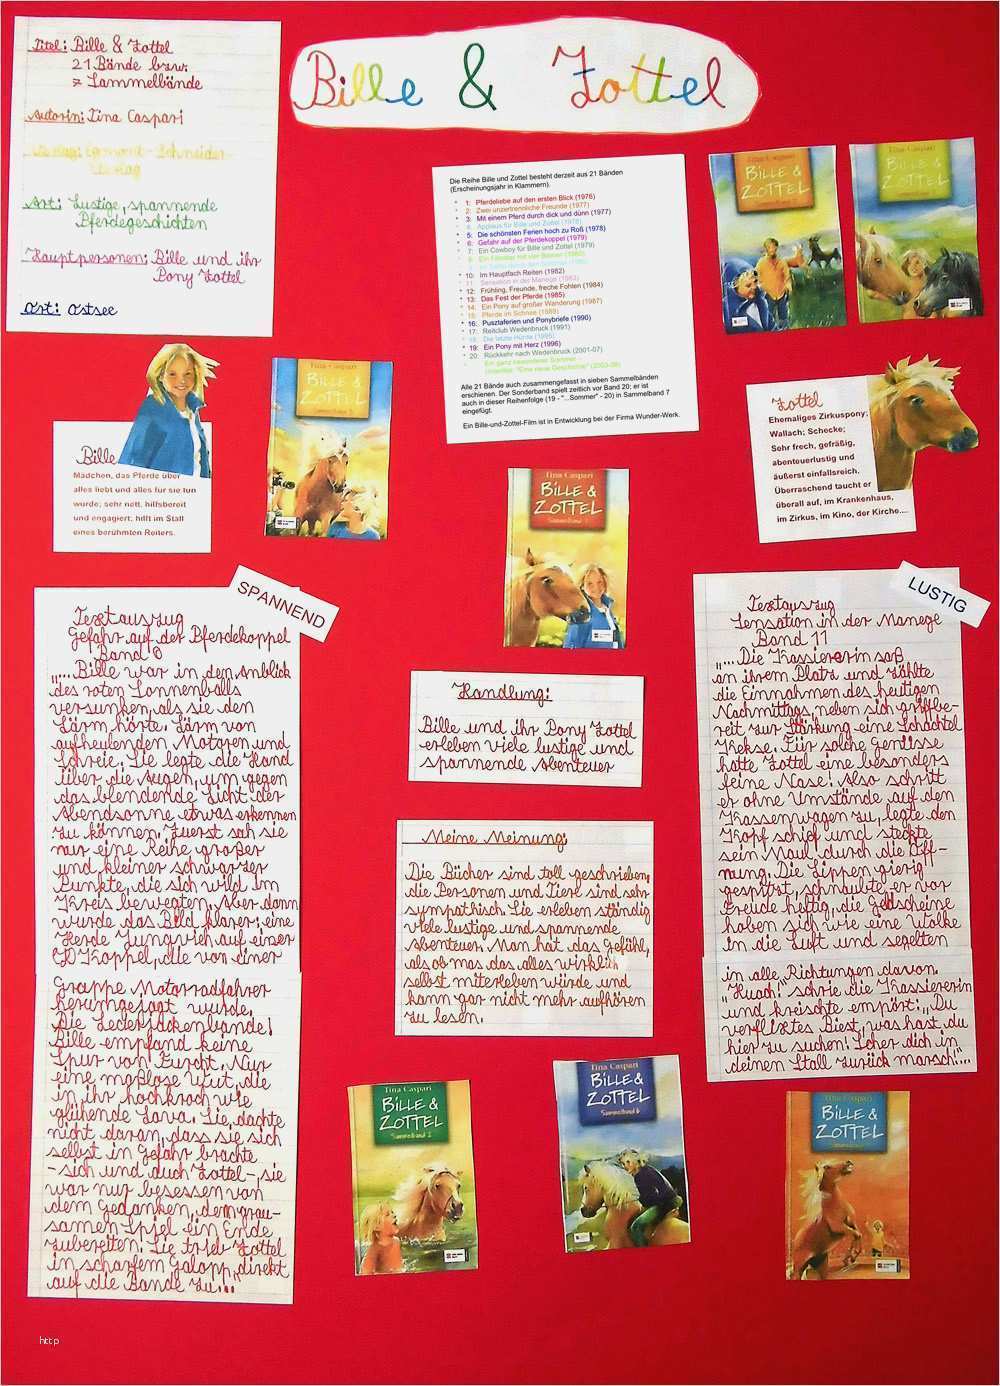 Titel: Bille & Zottel
21 Bände bzw.
7 Sammelbände
Autorin: Tina Caspari
Verlag: Egmont-Schneider-
Verlag
Art: Lustige, spannende
Pferdegeschichten
Hauptpersonen: Bille und ihr
Pony Zottel
Ort: Ostsee
Bille & Zottel
Die Reihe Bille und Zottel besteht derzeit aus 21 Bänden
(Erscheinungsjahr in Klammern).
1: Pferdeliebe auf den ersten Blick (1976)
2: Zwei unzertrennliche Freunde (1977)
3: Mit einem Pferd durch dick und dünn (1977)
4: Applaus für Bille und Zottel (1978)
5: Die schönsten Ferien hoch zu Roß (1978)
6: Gefahr auf der Pferdekoppel (1979)
7: Ein Cowboy für Bille und Zottel (1979)
8: Ein Filmstar mit vier Beinen (1980)
10: Im Hauptfach Reiten (1982)
11: Sensation in der Manege (1983)
12: Frühling, Freunde, freche Fohlen (1984)
13: Das Fest der Pferde (1985)
14: Ein Pony auf großer Wanderung (1987)
15: Pferde im Schnee (1989)
16: Pusztaferien und Ponybriefe (1990)
17: Reitclub Wedenbruck (1991)
18: Die letzte Hürde
19: Ein Pony mit Herz (1996)
20: Rückkehr nach Wedenbruck (2001-07)
Ein ganz besonderer Sommer -
"Eine neue Geschichte" (2003-08)
Alle 21 Bände auch zusammengefasst in sieben Sammelbänden
erschienen. Der Sonderband spielt zeitlich vor Band 20; er ist
auch in dieser Reihenfolge (19 - "...Sommer" - 20) in Sammelband 7
eingefügt.
Ein Bille-und-Zottel-Film ist in Entwicklung bei der Firma Wunder-Werk.
Tina Caspari
BILLE &
ZOTTEL
Tina Caspari
BILLE &
ZOTTEL
Bille
Mädchen, das Pferde über
alles liebt und alles für sie tun
würde; sehr nett, hilfsbereit
und engagiert; hilft im Stall
eines berühmten Reiters.
Tina Caspari
BILLE &
ZOTTEL
Zottel
Ehemaliges Zirkuspony;
Wallach; Schecke;
Sehr frech, gefräßig,
abenteuerlustig und
äußerst einfallsreich.
Überraschend taucht er
überall auf, im Krankenhaus,
im Zirkus, im Kino, der Kirche....
Tina Caspari
BILLE &
ZOTTEL
SPANNEND
Textauszug
Gefahr auf der Pferdekoppel
Band 6
"...Bille war in den Anblick
des roten Sonnenballs
versunken, als sie den
Lärm hörte. Lärm von
aufheulenden Motoren und
Schreie. Sie legte die Hand
über die Augen, um gegen
das blendende Licht der
Abendsonne etwas erkennen
zu können. Zuerst sah sie
nur eine Reihe großer
und kleiner schwarzer
Punkte, die sich wild im
Kreis bewegten. Aber dann
wurde das Bild klarer: eine
Herde Jungvieh auf einer
Koppel, die von einer
Gruppe Motorradfahrer
herumgejagt wurde.
Die Lederjackenbande!
Bille empfand keine
Spur von Furcht. Nur
eine maßlose Wut, die
in ihr hochkroch wie
glühende Lava. Sie dachte
nicht daran, dass sie sich
selbst in Gefahr brachte
- sich und auch Zottel -, sie
war nur besessen von
dem Gedanken, dem grau-
samen Spiel ein Ende
zubereiten. Sie trieb Zottel
in scharfem Galopp direkt
auf die Bande zu..."
Handlung:
Bille und ihr Pony Zottel
erleben viele lustige und
spannende Abenteuer
Meine Meinung:
Die Bücher sind toll geschrieben,
die Personen und Tiere sind sehr
sympathisch. Sie erleben ständig
viele lustige und spannende
Abenteuer. Man hat das Gefühl,
als ob mas das alles wirklich
selbst miterleben würde und
kann gar nicht mehr aufhören
zu lesen.
LUSTIG
Textauszug
Sensation in der Manege
Band 11
"...Die Kassiererin saß
an ihrem Platz und zählte
die Einnahmen des heutigen
Nachmittags, neben sich griffbe-
reit zur Stärkung eine Schachtel
Kekse. Für solche Genüsse
hatte Zottel eine besonders
feine Nase! Also schritt
er ohne Umstände auf den
Kassenwagen zu, legte den
Kopf schief und steckte
sein Maul durch die Öff-
nung. Die Lippen gierig
gespitzt, schnaubte er vor
Freude heftig, die Geldscheine
hoben sich wie eine Wolke
in die Luft und segelten
in alle Richtungen davon.
"Huach!" schrie die Kassiererin
und kreischte empört: "Du
verflixtes Biest, was hast du
hier zu suchen! Scher dich in
deinen Stall zurück marsch!"...
Tina Caspari
BILLE &
ZOTTEL
Sammelband 2
Tina Caspari
BILLE &
ZOTTEL
Sammelband 6
Tina Caspari
BILLE &
ZOTTEL
http